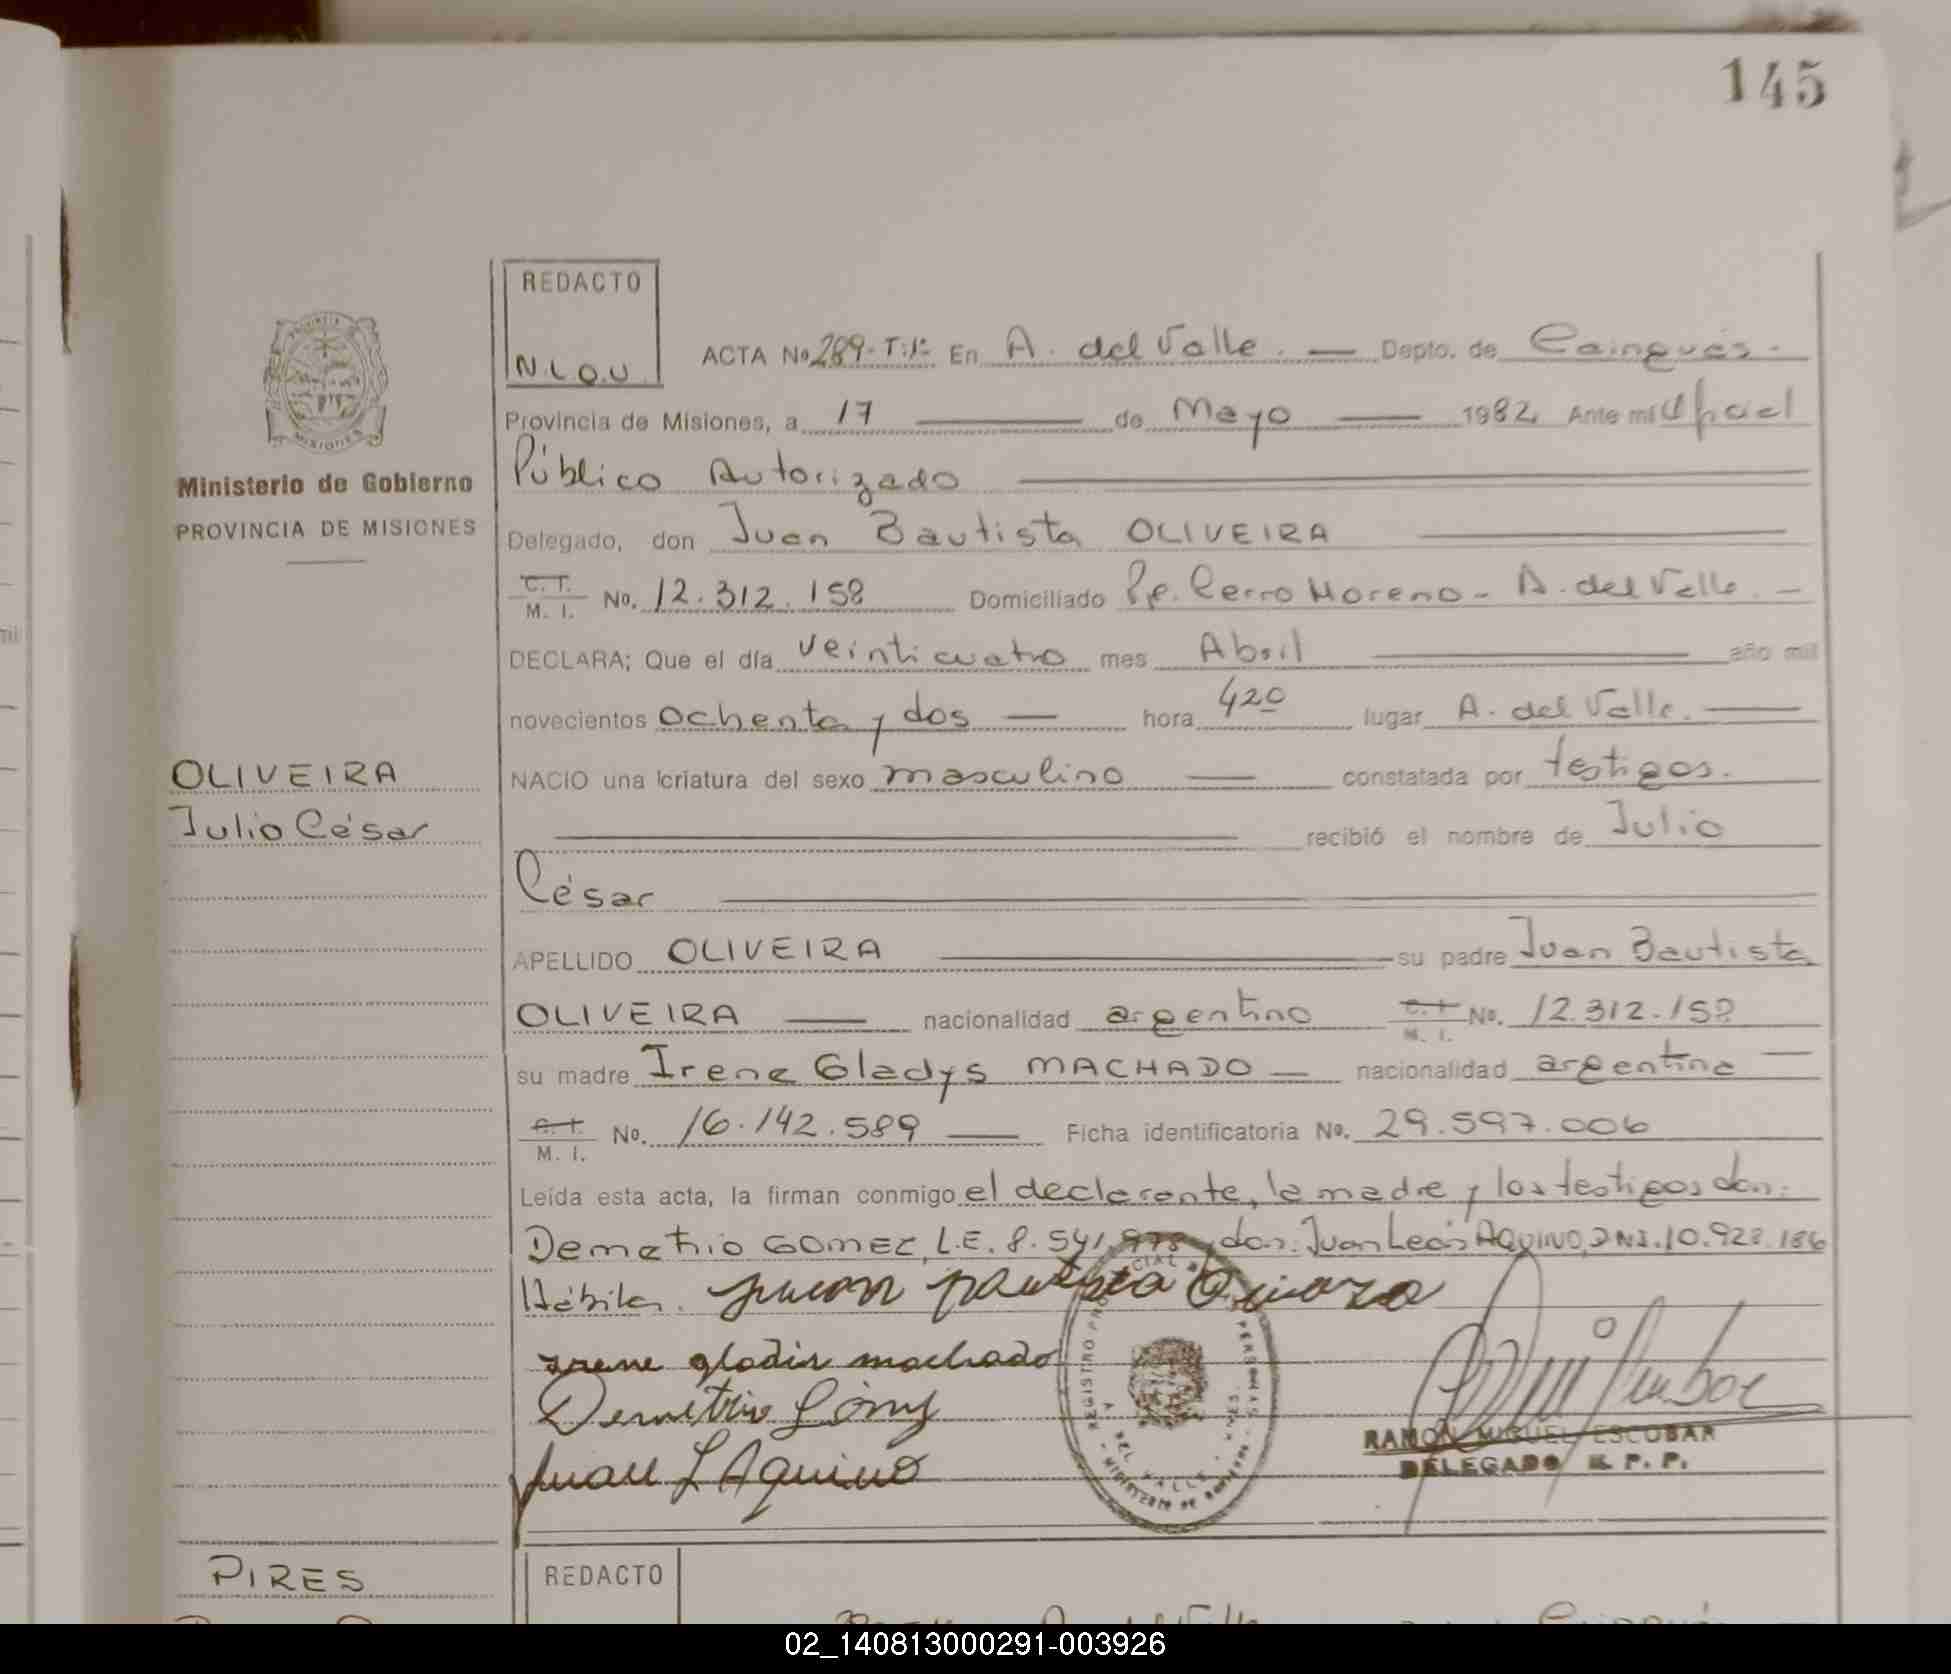 145
REDACTO
N.L.O.U.
PROVINCIA
MISIONES
Ministerio de Gobierno
PROVINCIA DE MISIONES
ACTA No 289-T:1º En A. del Valle. — Depto. de Cainguás.-
Provincia de Misiones, a 17 — de Mayo — 1982 Ante mi Oficial
Público Autorizado
Delegado, don Juan Bautista OLIVEIRA
C. T. M. I. No. 12.312.158 Domiciliado Pje. Cerro Moreno - A. del Valle. -
DECLARA; Que el día veinticuatro mes Abril — año mil
novecientos ochenta y dos — hora 420 lugar A. del Valle. —
OLIVEIRA
Julio César
NACIO una criatura del sexo masculino — constatada por testigos.
— recibió el nombre de Julio
César
APELLIDO OLIVEIRA — su padre Juan Bautista
OLIVEIRA — nacionalidad argentino C. T. M. I. No. 12.312.158
su madre Irene Gladys MACHADO — nacionalidad argentina —
C. T. M. I. No. 16.142.589 — Ficha identificatoria No. 29.597.006
Leída esta acta, la firman conmigo el declarante, la madre y los testigos don:
Demetrio GOMEZ, L.E. 8.541.978 y don: Juan León AQUINO, DNI. 10.928.186
Hábiles.
irene gladis machado
Demetrio Gómez
Juan L Aquino
RAMON MIGUEL ESCOBAR
DELEGADO R. P. P.
PIRES
REDACTO
02_140813000291-003926